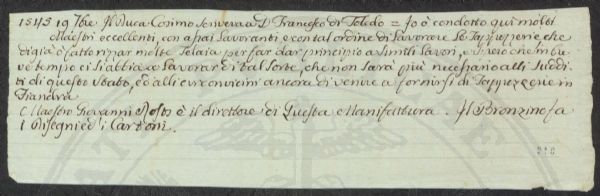 1545 19 7bre Il Duca Cosimo scriveva a D Francesco di Toledo = Io ò condotto qui molti
Maestri eccellenti, con assai Lavoranti, e con tal ordine di Lavorare Le Tappezzerie che
di già ò fatto ripar molte Telaia per far dar principio a simili Lavori, e spero che in bre
ve tempo ci si abbia a Lavorar di tal sorte, che non sarà più necessario alli sudd
ti di questo Stato, ed alli circonvicini ancora di venire a fornirsi di Tappezzerie in
Fiandra
Maestro Giovanni Rosto è il direttore di Questa Manifattura. Il Bronzino fa
i Disegni ed i Cartoni.